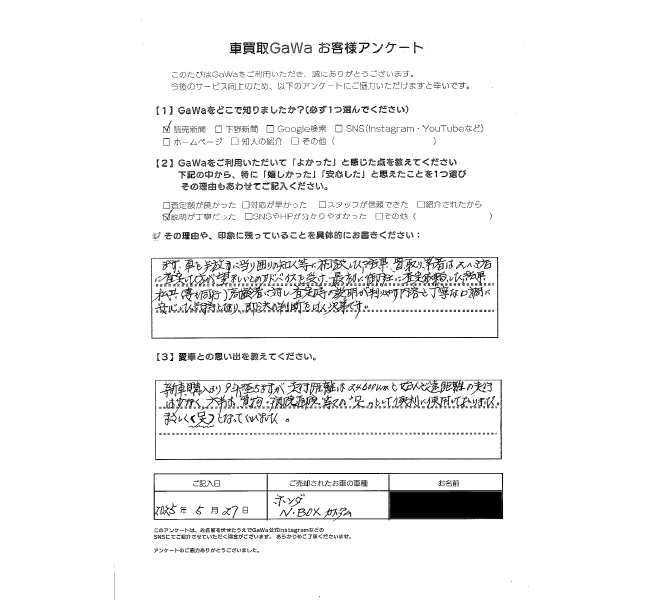 車買取GaWa お客様アンケート
このたびはGaWaをご利用いただき、誠にありがとうございます。
今後のサービス向上のため、以下のアンケートにご協力いただけますと幸いです。
【1】GaWaをどこで知りましたか？(必ず1つ選んでください)
☑ 読売新聞 □ 下野新聞 □ Google検索 □ SNS(Instagram・YouTubeなど)
□ ホームページ □ 知人の紹介 □ その他 ( )
【2】GaWaをご利用いただいて「よかった」と感じた点を教えてください
下記の中から、特に「嬉しかった」「安心した」と思えたことを1つ選び
その理由もあわせてご記入ください。
□査定額が良かった □対応が早かった □スタッフが信頼できた □紹介されたから
☑説明が丁寧だった □SNSやHPが分かりやすかった □その他 ( )
その理由や、印象に残っていることを具体的にお書きください：
まず、車を手放すに当り周りの知人等に相談した結果、買取り業者は
に査定した方が望ましいとのアドバイスを受け、最初に御社に査定依頼した結果
私共(妻が同行)高齢者に対し査定時の説明が判り易く内容と丁寧な口調に
安心した気持と成り、即決の判断をした次第です。
【3】愛車との思い出を教えてください。
新車購入より 走行距離は24600kmと 遠距離の
病院通院 等での"足"として便利に使用しておりました。
まさしく《足》となってくれました。
ご記入日 ご売却されたお車の車種 お名前
2025 年 5 月 27 日
ホンダ
N-BOX カスタム
このアンケートは、お名前を伏せたうえでGaWa公式Instagramなどの
SNSにてご紹介させていただく場合がございます。あらかじめご了承くださいませ。
アンケートのご協力ありがとうございました。